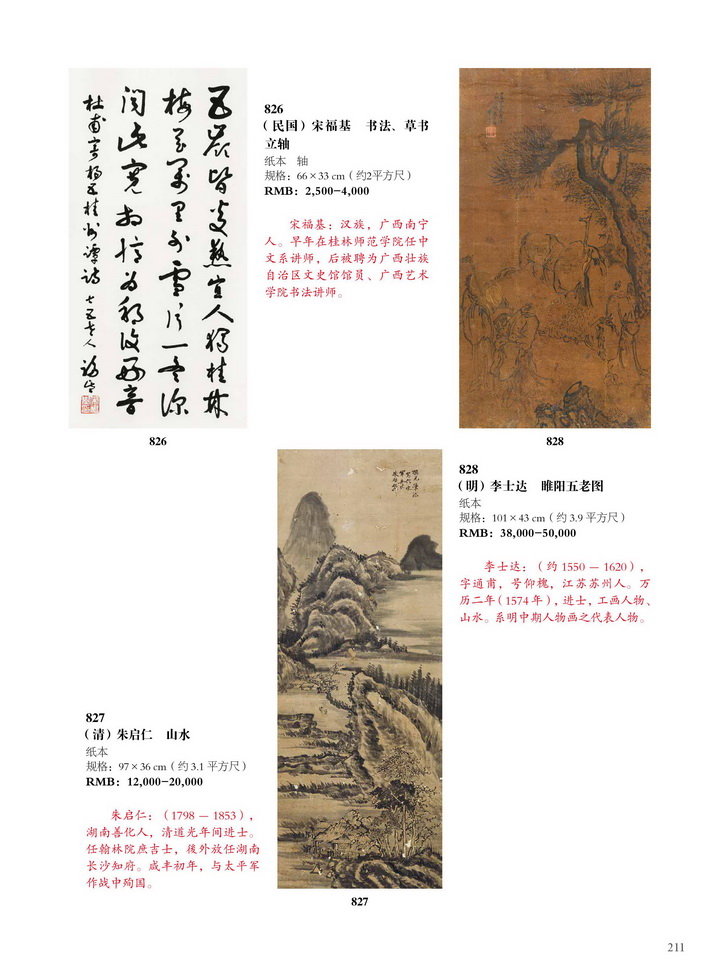 五嶺皆炎熱宜人獨桂林
梅花萬里外雪片一冬深
聞此寬相憶為邦復好音
杜甫寄楊五桂州譚詩 七五老人 福基
826
826
（民国）宋福基　书法、草书
立轴
纸本　轴
规格：66×33 cm（约2平方尺）
RMB：2,500-4,000
宋福基：汉族，广西南宁
人。早年在桂林师范学院任中
文系讲师，后被聘为广西壮族
自治区文史馆馆员、广西艺术
学院书法讲师。
828
828
（明）李士达　睢阳五老图
纸本
规格：101×43 cm（约 3.9 平方尺）
RMB：38,000-50,000
李士达：（约 1550 — 1620），
字通甫，号仰槐，江苏苏州人。万
历二年（1574 年），进士，工画人物、
山水。系明中期人物画之代表人物。
827
（清）朱启仁　山水
纸本
规格：97×36 cm（约 3.1 平方尺）
RMB：12,000-20,000
朱启仁：（1798 — 1853），
湖南善化人，清道光年间进士。
任翰林院庶吉士，後外放任湖南
长沙知府。咸丰初年，与太平军
作战中殉国。
827
211